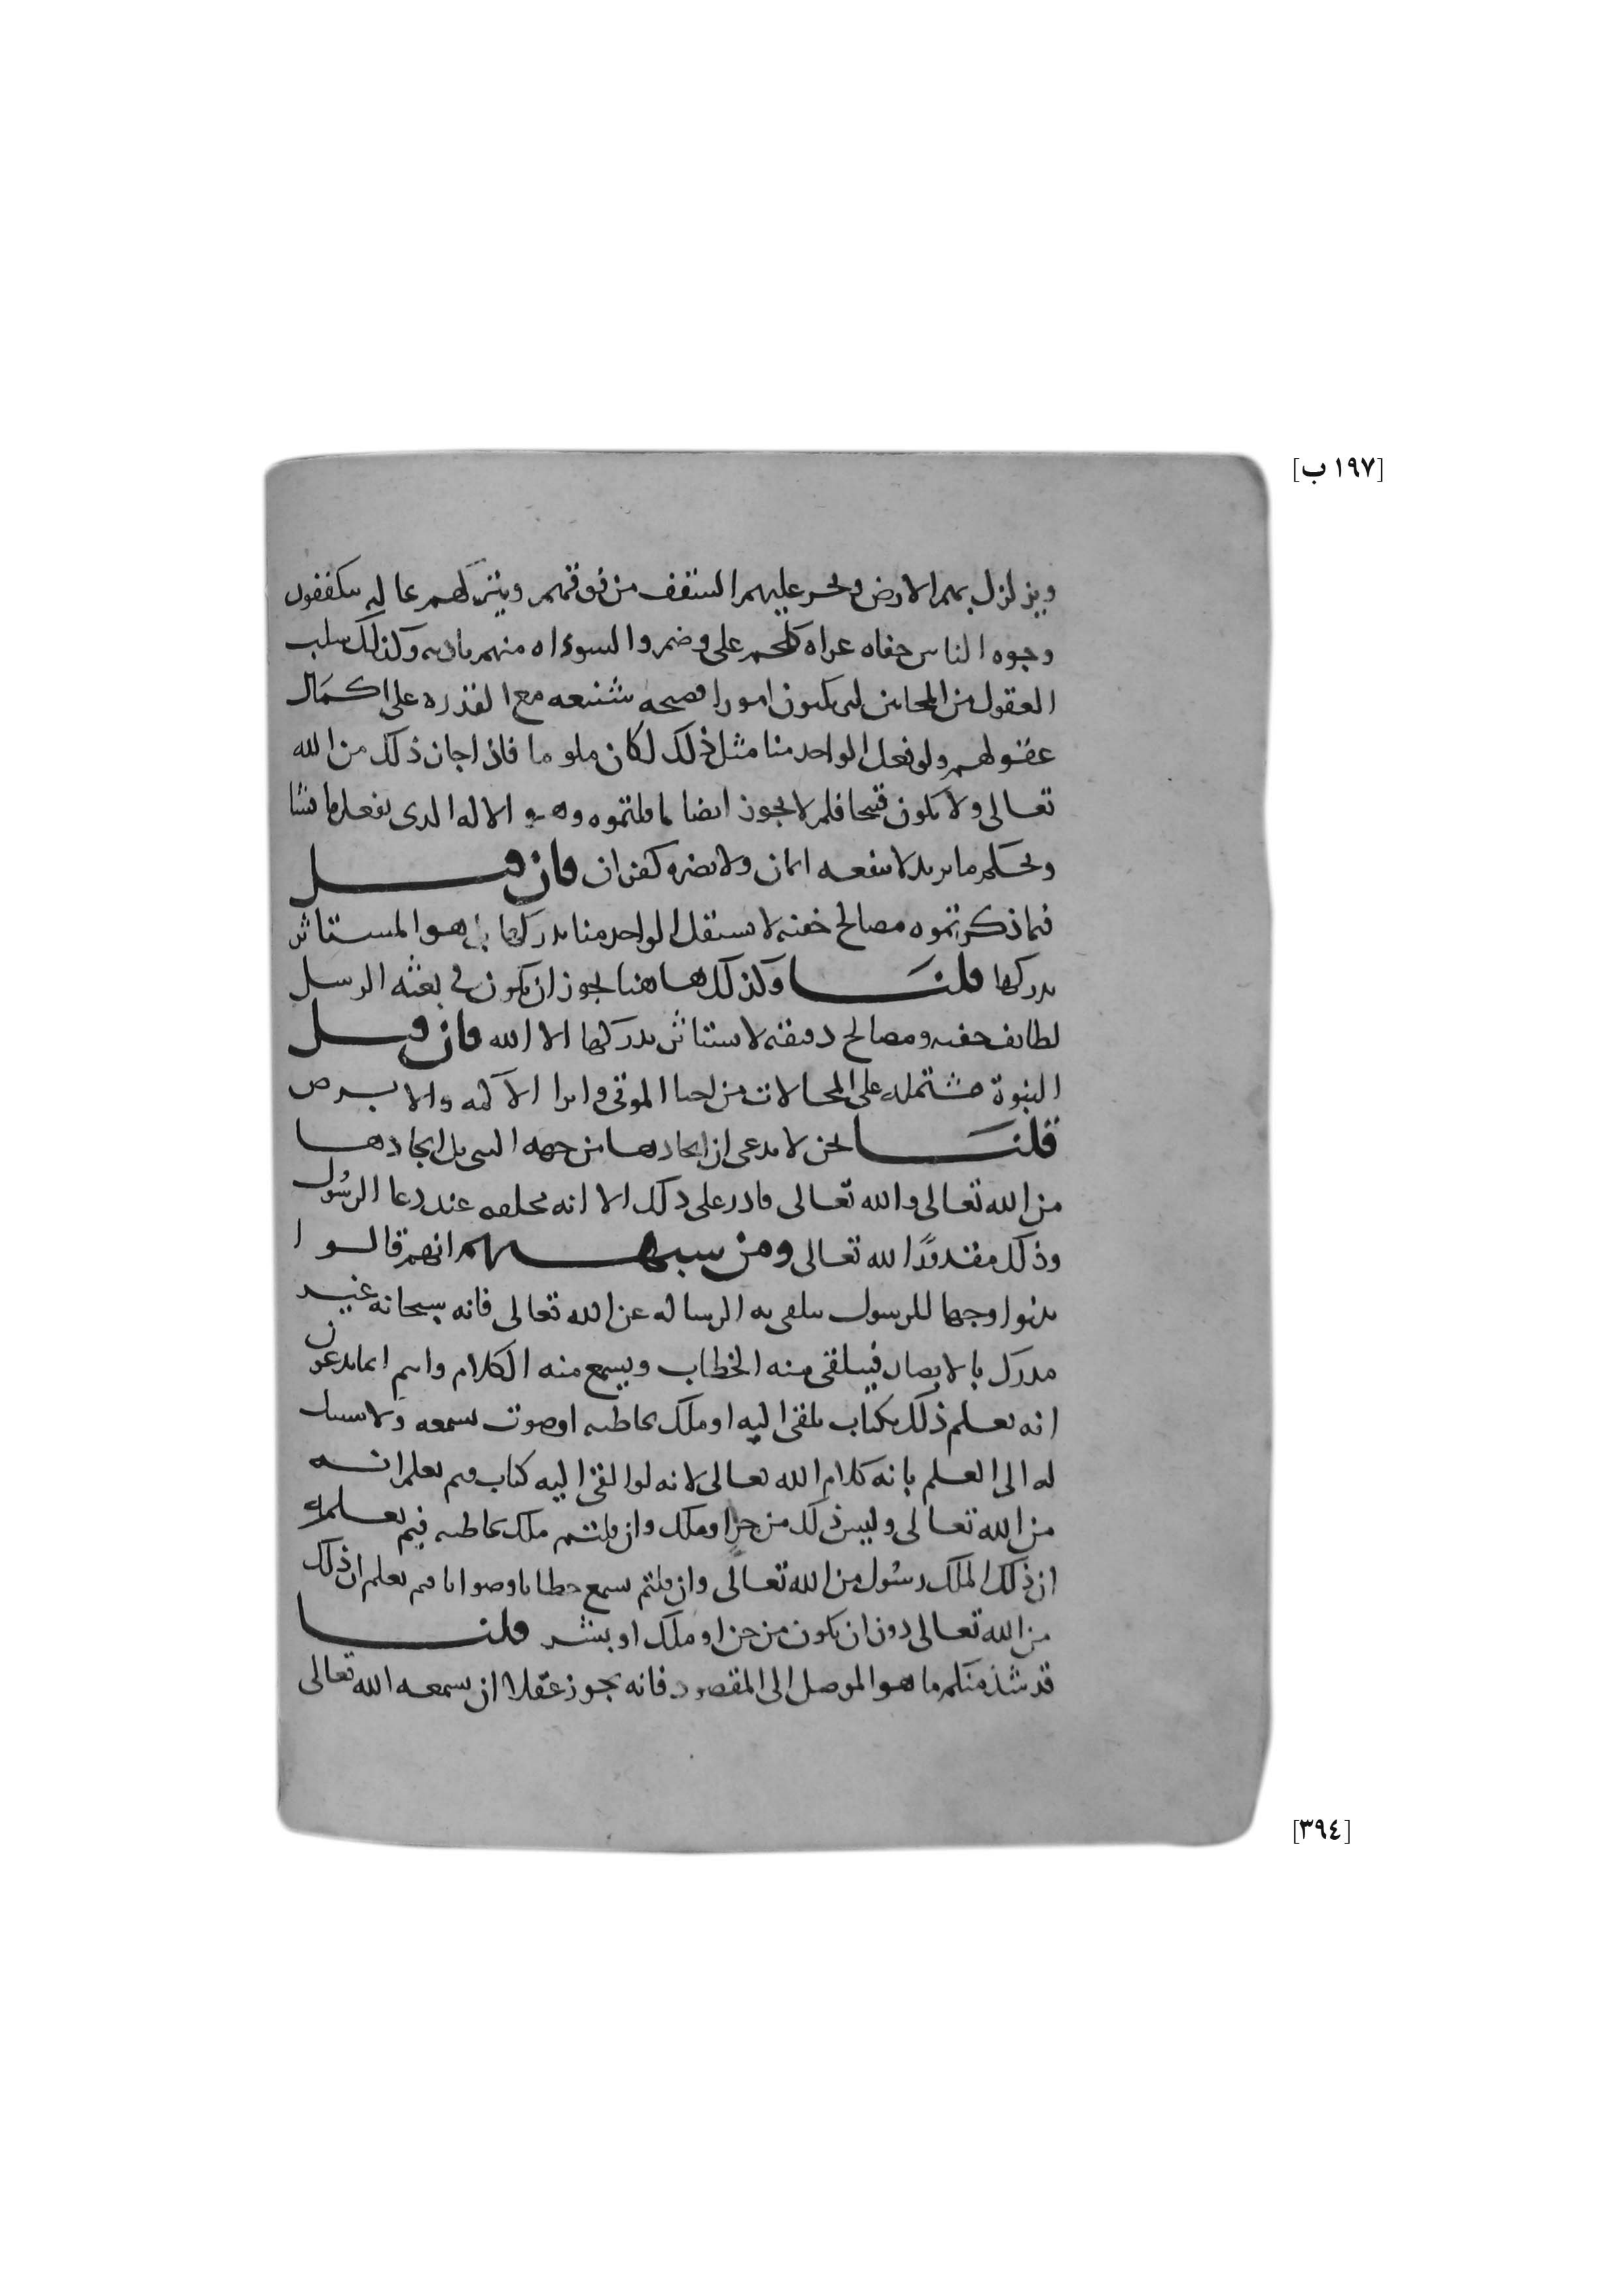 [١٩٧ ب]
ويزلزل بهم الارض ويخر عليهم السقف من فوقهم ويتركهم عاله يتكففون
وجوه الناس حفاه عراه كلحم على وضم والسوءاه منهم باديه وكذلك سلب
العقول من المجانين يكون امورا قبيحه شنيعه مع القدره على اكمال
عقولهم ولو فعل الواحد منا مثل ذلك لكان ملوما فاذا جاز ذلك من الله
تعالى ولا يكون قبيحا فلم لا يجوز ايضا ما قلتموه وهو الاله الذى يفعل ما يشا
ويحكم ما يريد لا ينفعه ايمان ولا يضره كفران فان قيل
فيما ذكرتموه مصالح خفيه لا يستقل الواحد منا بدركها بل هو المستاثر
بدركها قلنا وكذلك هاهنا يجوز ان يكون فى بعثه الرسل
لطايف خفيه ومصالح دقيقه لا يستاثر بدركها الا الله فان قيل
النبوة مشتمله على المحالات من احيا الموتى وابرا الاكمه والابرص
قلنا نحن لا ندعى ان ايجادها من جهه النبى بل ايجادها
من الله تعالى والله تعالى قادر على ذلك الا انه يخلقه عند دعا الرسُول
وذلك مقدورًا لله تعالى ومن شبههم انهم قالوا
بينوا وجها للرسول يتلقى به الرساله عن الله تعالى فانه سبحانه غير
مدرك بالابصار فيتلقى منه الخطاب ويسمع منه الكلام وانتم انما تدعون
انه يعلم ذلك بكتاب يلقى اليه او ملك يخاطبه او صوت يسمعه ولا سبيل
له الى العلم بانه كلام الله تعالى لانه لو القى اليه كتاب فبم يعلم انه
من الله تعالى وليس ذلك من جن او ملك وان قلتم ملك يخاطبه فبم يعلم
ان ذلك الملك رسُول من الله تعالى وان قلتم يسمع خطابا وصوتا فبم يعلم ان ذلك
من الله تعالى دون ان يكون من جن او ملك او بشر قلنا
قد شذ منكم ما هو الموصل الى المقصود فانه يجوز عقلا ان يسمعه الله تعالى
[٣٩٤]